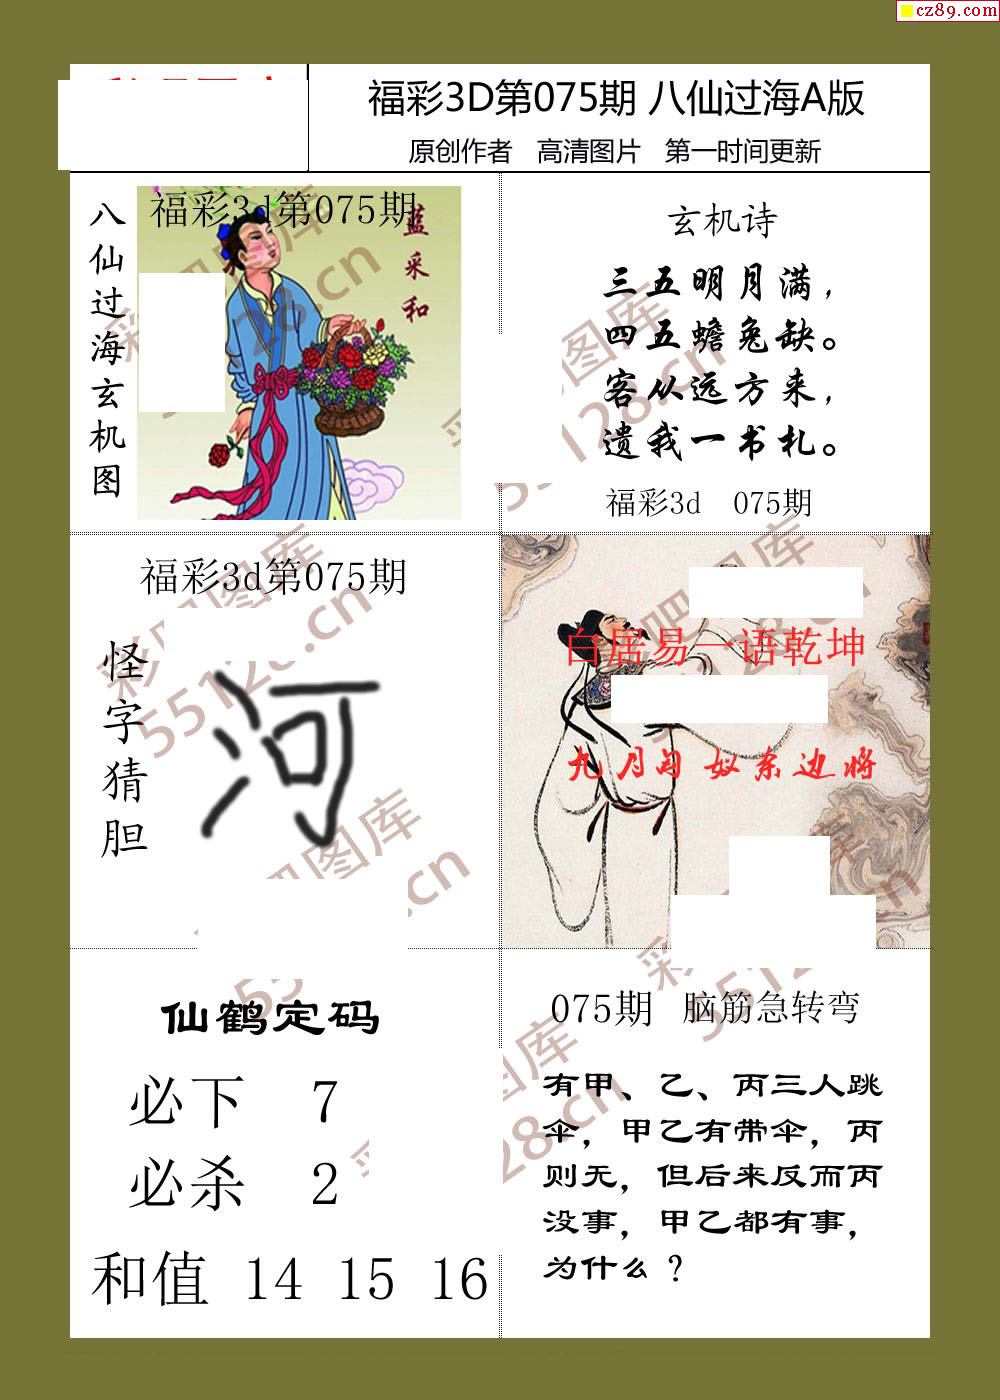 cz89.com
福彩3D第075期 八仙过海A版
原创作者 高清图片 第一时间更新
八仙过海玄机图
福彩3d第075期
蓝采和
玄机诗
三五明月满，
四五蟾兔缺。
客从远方来，
遗我一书札。
福彩3d 075期
福彩3d第075期
怪字猜胆
河
白居易一语乾坤
九月匈奴杀边将
仙鹤定码
必下 7
必杀 2
和值 14 15 16
075期 脑筋急转弯
有甲、乙、丙三人跳
伞，甲乙有带伞，丙
则无，但后来反而丙
没事，甲乙都有事，
为什么？